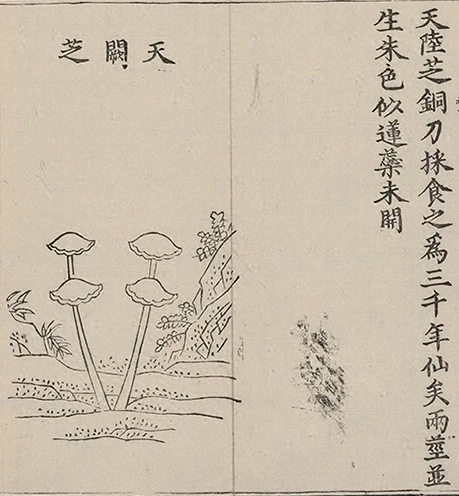 天陸芝銅刀採食之爲三千年仙矣兩莖並
生朱色似蓮蘂未開
天闕芝